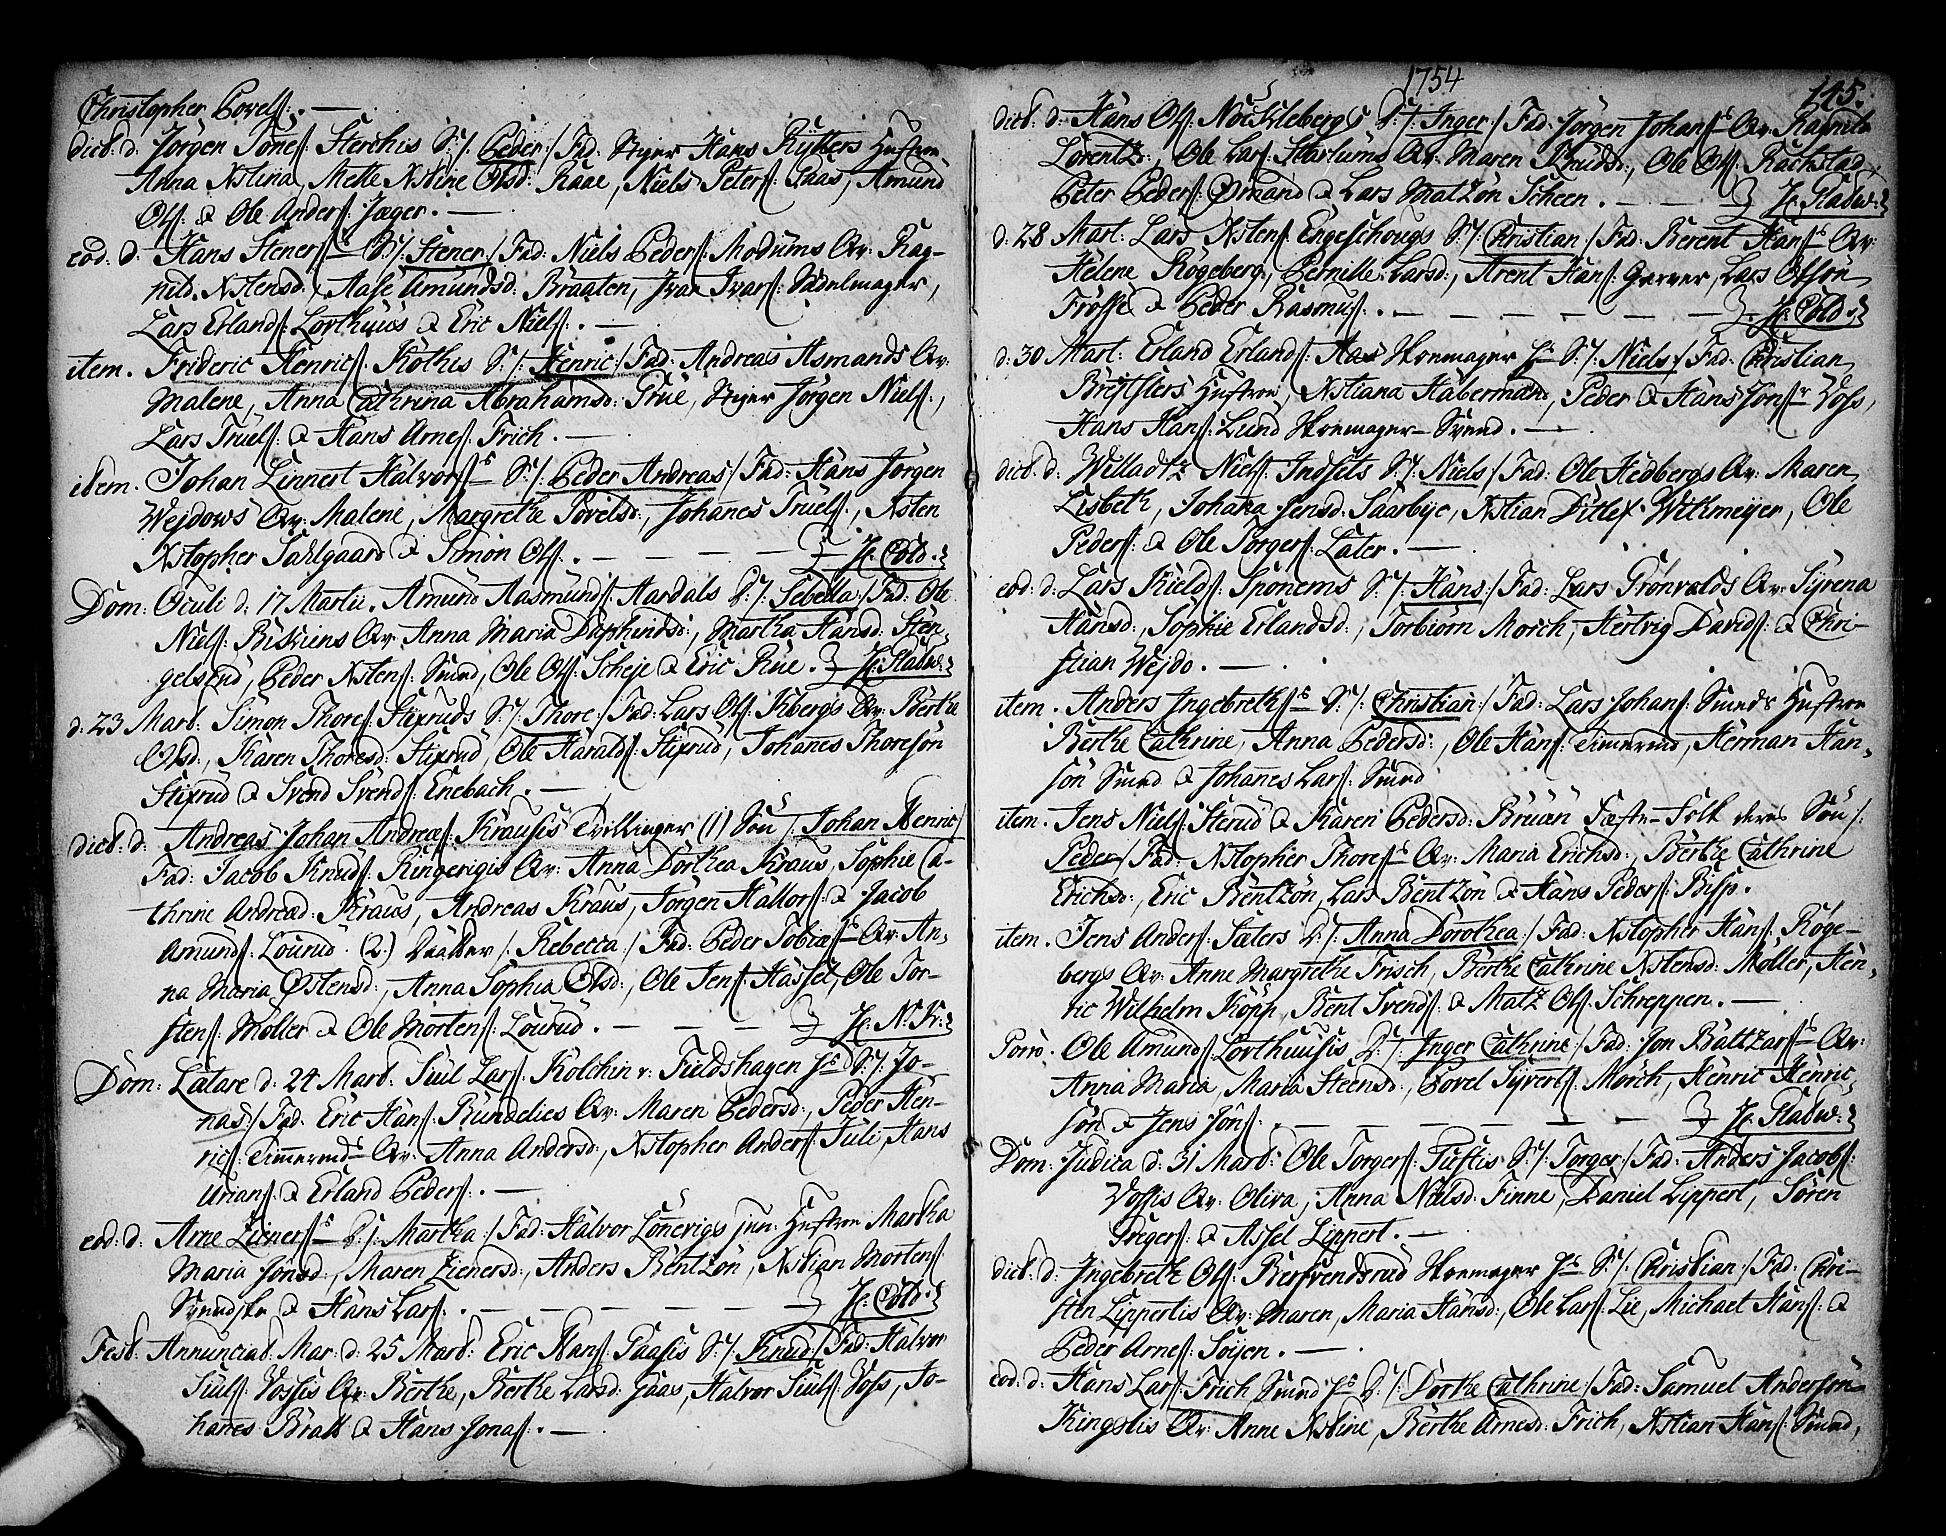 Christopher Povels: . —
dict. d. Jörgen Tönes: Sterchis S: /: Peder :/ Fad: Hans Rytters Hustroe
Anna Xstina, Mette Xstine Olsd: Raae, Niels Peters: Gaas, Amund
Ols: & Ole Anders: Jæger. —
eod: d: Hans Steners: S: /: Stener :/ Fad: Niels Peders: Modums Qv: Rag-
nild Xstensd:, Aase Amundsd: Braaten, Ivar Ivars: Sadelmager,
Lars Erlands: Lorthuus & Eric Niels: . —
item. Frideric Henrics: Kothes S: /: Henric :/ Fad: Andreas Asmands Qv:
Malene, Anna Cathrina Abrahamsd: True, Jörgen Niels:,
Lars Truels: & Hans Arnes: Frich. —
item. Johan Linnert Halvors: S: /: Peder Andreas :/ Fad: Hans Jörgen
Wejdows Qv: Malene, Margrethe Povelsd:, Johanes Truels:, Xsten
Xstopher Sahlgaard & Simon Ols: . — — — — } H: Cold.
Dom: Oculi d: 17 Martii. Amund Aasmunds: Aardals D: /: Sebella :/ Fad: Ole
Niels: Biskiens Qv: Anna Maria Daphinsd:, Martha Hansd: Sten-
gelsrud, Peder Xstens: Smed, Ole Ols: Scheje & Eric Rue. } H: Stabw:
d: 23 Mart: Simon Thores: Stixruds S: /: Thore :/ Fad: Lars Ols: Kibergs Qv: Berthe
Olsd:, Karen Thoresd: Stixrud, Ole Haralds: Stixrud, Johannes Thoresön
Stixrud & Svend Svends: Enebach. —
dict. d: Andreas Johan Andreæs: Krausis Tvillinger (1) Sön /: Johan Henric :/
Fad: Jacob Knuds: Ringerigis Qv: Anna Dorthea Kraus, Sophie Ca-
thrine Andread: Kraus, Andreas Kraus, Jörgen Hallors: & Jacob
Amunds: Lourud. (2.) Datter /: Rebecca :/ Fad: Peder Tobiæs: Qv: An-
na Maria Østensd:, Anna Sophia Olsd:, Ole Jens: Hassel, Ole Tor-
stens: Möller & Ole Mortens: Lourud. — — — } H: N: Kr:
Dom: Lætare d: 24 Mart: Juul Lars: Kolchin v: Fieldshagen S: /: Jo-
nas :/ Fad: Eric Hans: Rundelies Qv: Maren Pedersd:, Peder Hen-
rics: Timermds Qv: Anna Andersd:, Xstopher Anders: Juli, Hans
Urians: & Erland Peders: . —
eod: d: Arne Zieners: D: /: Martha :/ Fad: Halvor Lönevigs jun: Hustroe Martha
Maria Jonsd:, Maren Zienersd:, Anders Bentzön, Xstian Mortens:
Svendske & Hans Lars: . — — — — — } H: Cold.
Fest. Annunciat. Mar: d: 25 Mart: Eric Hans: Paasis S: /: Knud :/ Fad: Halvor
Juuls: Vossis Qv: Berthe, Berthe Larsd: Gaas, Halvor Juuls: Voss, Jo-
hanes Bratt & Hans Jonas: . —
1754
145.
dict. d: Hans Ols: Nochlebergs D: /: Inger :/ Fad: Jörgen Johans: Qv: Ragnile
Lorentzd:, Ole Lars: Starlums Qv: Maren Knudsd:, Ole Ols: Rachstad,
Peter Peders: Ormand & Lars Matzön Scheen. — — } H: Stabw:
d: 28 Mart: Lars Xstens: Engeschougs S: /: Christian :/ Fad: Berent Hans: Qv:
Helene Rögeberg, Pernille Larsd:, Arent Hans: Garver, Lars Olssön
Frösse & Peder Rasmus: . — — — — — — } H: Cold.
d: 30 Mart: Erland Erlands: Aas Skoemager S: /: Niels :/ Fad: Christian
Hustroe, Xstiana Habermand, Peder & Hans Jons: Voss,
Hans Hans: Lund Skoemager-Svend. —
dict. d: Willadtz Niels: Indsets S: /: Niels :/ Fad: Ole Hedbergs Qv: Maren
Lisbeth, Johana Jensd: Saarbye, Xstian Ditlef Withmeyer, Ole
Peders: & Ole Torgers: Later. —
eod: d: Lars Kields: Sponems S: /: Hans :/ Fad: Lars Grönvolds Qv: Syrena
Hansd:, Sophie Erlandsd:, Torbiörn Morch, Hertvig Davids: & Chri-
stian Wejdo. —
item. Anders Ingebreths: S: /: Christian :/ Fad: Lars Johans: Smeds Hustroe
Berthe Cathrine, Anna Pedersd:, Ole Hans: Timermd, Herman Han-
sön Smed & Johannes Lars: Smed
item. Jens Niels: Sterud & Karen Pedersd: Bruun Fæste-Folk deres Sön /:
Peder :/ Fad: Xstopher Thores: Qv: Maria Erichsd:, Berthe Cathrine
Erichsd:, Eric Bentzön, Lars Bentzön & Hans Peders: Bisp.
item. Jens Anders: Sæters D: /: Anna Dorothea :/ Fad: Xstopher Hans: Röge-
bergs Qv: Anne Margrethe Frisch, Berthe Cathrine Xstensd: Möller, Hen-
ric Wilhelm Kopp, Bent Svends: & Matz Ols: Schreppen. —
Porro. Ole Amunds: Lorthuusis D: /: Inger Cathrine :/ Fad: Jon Baltzars: Qv:
Anna Maria, Maria Steensd:, Povel Syverts: Morch, Henric Henric-
sön & Jens Jons: . — — — — — — } H: Stabw:
Dom: Judica d: 31 Mart: Ole Torgers: Tuftis S: /: Torger :/ Fad: Anders Jacobs:
Vossis Qv: Oliva, Anna Nielsd: Finne, Daniel Lippert, Sören
Gregers: & Assel Lippert. —
dict. d: Ingebreth Ols: Bersvendsrud Skoemager S: /: Christian :/ Fad: Chri-
sten Lippertis Qv: Maren, Maria Hansd:, Ole Lars: Lie, Michael Hans: &
Peder Arnes: Soyen. —
eod: d: Hans Lars: Frich Smed D: /: Dorthe Cathrine :/ Fad: Samuel Andersön
Kingstis Qv: Anne Xstine, Berthe Arnesd: Frich, Xstian Hans: Smed,